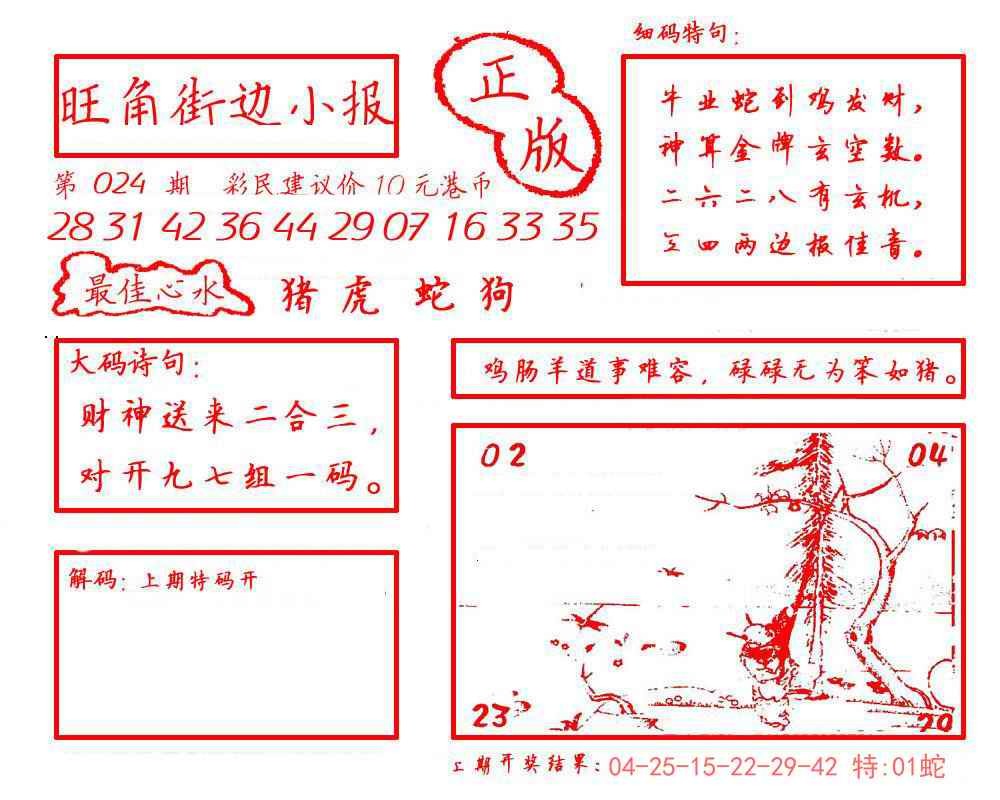 旺角街边小报
正
版
第 024 期 彩民建议价10元港币
28 31 42 36 44 29 07 16 33 35
最佳心水
猪 虎 蛇 狗
细码特句：
牛业蛇到鸡发财，
神算金牌玄空数。
二六二八有玄机，
四两边报佳音。
大码诗句：
财神送来二合三，
对开九七组一码。
鸡肠羊道事难容，碌碌无为笨如猪。
02
04
23
20
解码：上期特码开
上期开奖结果：04-25-15-22-29-42 特:01蛇